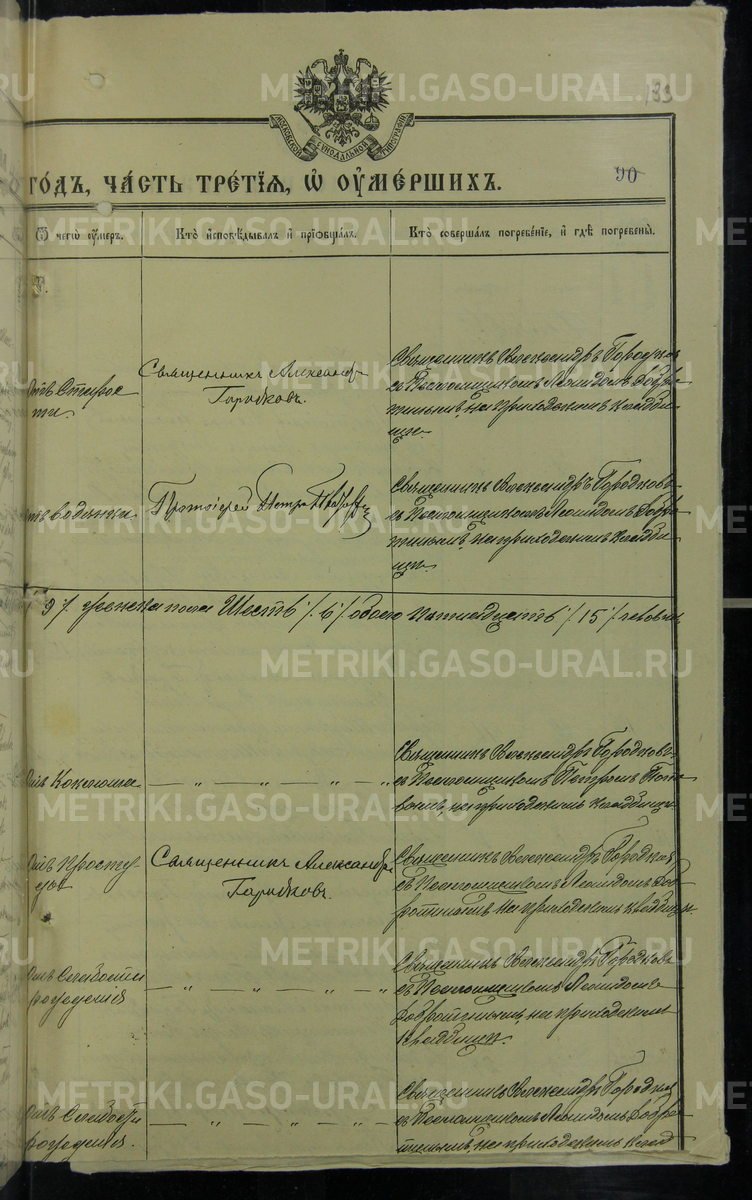 METRIKI.GASO-URAL.RU
133
МОСКОВСКОЙ СѴНОДАЛЬНОЙ ТИПОГРАФІИ
ГО́ДЪ, ЧА́СТЬ ТРЕ́ТІѦ, Ѡ҆ ОУ҆МЕ́РШИХЪ.
90
Ѿ чегѡ̀ оу҆́меръ.
Кто̀ и҆сповѣ́дывалъ и҆ прїѡбща́лъ.
Кто̀ соверша́лъ погребе́нїе, и҆ гдѣ̀ погребены̀.
Отъ Старос
ти
Священникъ Александръ
Городковъ.
Священникъ Александръ Городков
съ Псаломщикомъ Леонидомъ Добро
тинымъ, на приходскомъ кладби
ще.
отъ водянки
Протоіерей Петръ
Священникъ Александръ Городковъ
съ Псаломщикомъ Леонидомъ Добро
тинымъ, на приходскомъ кладби
ще.
9 /. женска пола Шесть /. 6 /. обоего пятнадцать /. 15 /. человек
Отъ Коклюша
— „ — „ — „ — „ — „
Священникъ Александръ Городковъ
съ Псаломщикомъ Петромъ Попо
вымъ, на приходскомъ кладбище
Отъ Просту
ды
Священникъ Александръ
Городковъ.
Священникъ Александръ Городков
съ Псаломщикомъ Леонидомъ Доб
ротинымъ на приходскомъ кладбище.
Отъ Слабости
рождения
— „ — „ — „ — „
Священникъ Александръ Городковъ
съ Псаломщикомъ Леонидомъ
Добротинымъ, на приходскомъ
кладбище.
Отъ Слабости
рождения.
— „ — „ — „ — „
Священникъ Александръ Городков
съ Псаломщикомъ Леонидомъ Добро
тинымъ, на приходскомъ клад